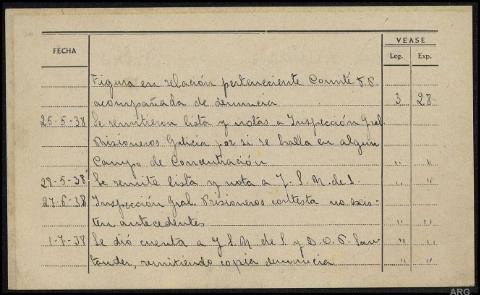 FECHA
VEASE
Leg. Exp.
Figura en relación perteneciente Comité S.S.
acompañada de denuncia 3 28
25-5-38 Se remitieron lista y notas a Inspección Gral
Prisioneros Galicia por si se halla en algún
Campo de Concentración " "
29-5-38 Se remite lista y nota a J.S.N. de S. " "
27-6-38 Inspección Gral. Prisioneros contesta no exis-
ten antecedentes " "
1-7-38 Se dió cuenta a J.S.N. de S. y D.O.P. San-
tander, remitiendo copia denuncia " "
ARG